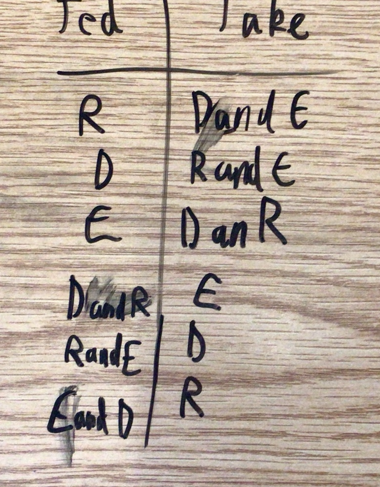 Ted Jake
R D and E
D R and E
E D an R
D and R E
R and E D
E and D R